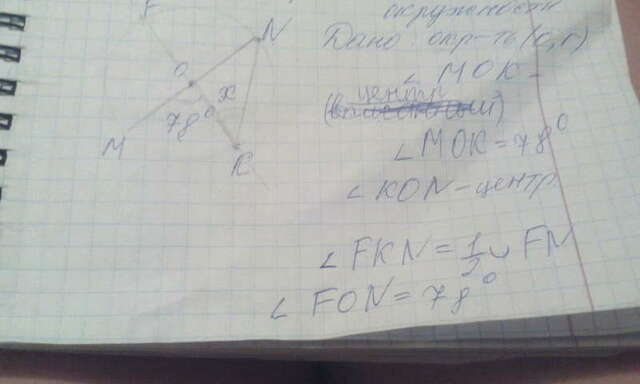 окружности
Дано: окр-ть (О, r)
∠ MOK -
центр
∠ MOK = 78°
∠ KON - центр.
∠ FKN = 1/2 ◡ FN
∠ FON = 78°
F
N
O
x
78°
M
K